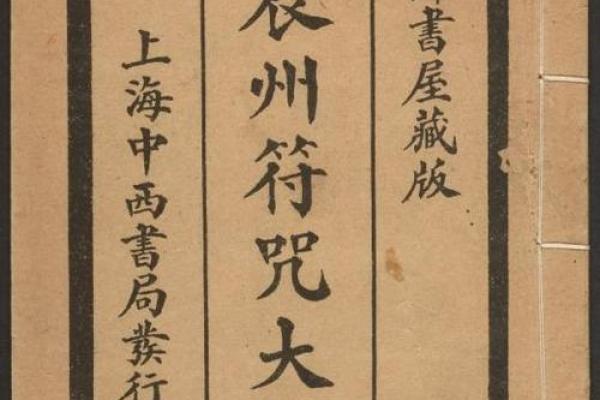 書屋藏版
辰州符咒大
上海中西書局發行